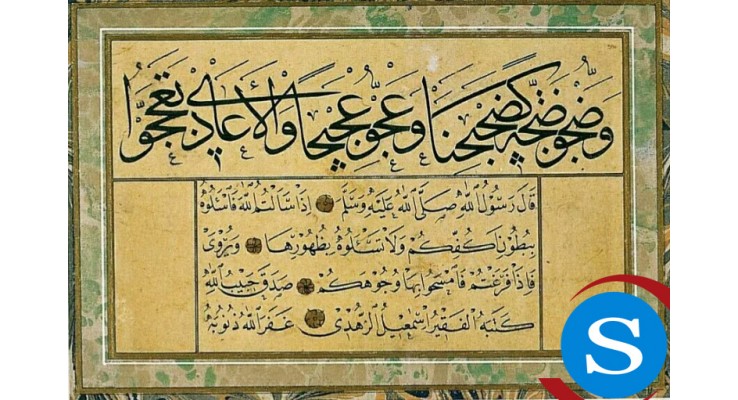 وضجوا ضجة كضجيجنا وعجوا عجيجا والأعادي تعججوا
قَالَ رَسُولُ اللهِ صَلَّى اللهُ عَلَيْهِ وَسَلَّمَ إِذَا سَأَلْتُمُ اللهَ فَاسْئَلُوهُ
بِبُطُونِ اَكُفِّكُمْ وَلَا تَسْئَلُوهُ بِظُهُورِهَا وَيُرْوٰى
فَاِذَا فَرَغْتُمْ فَامْسَحُوا بِهَا وُجُوهَكُمْ صَدَقَ حَبِيبُ اللهِ
كَتَبَهُ الْفَقِيرُ اِسْمٰعِيلُ الزُّهْدِى غَفَرَ اللهُ ذُنُوبَهُ
S